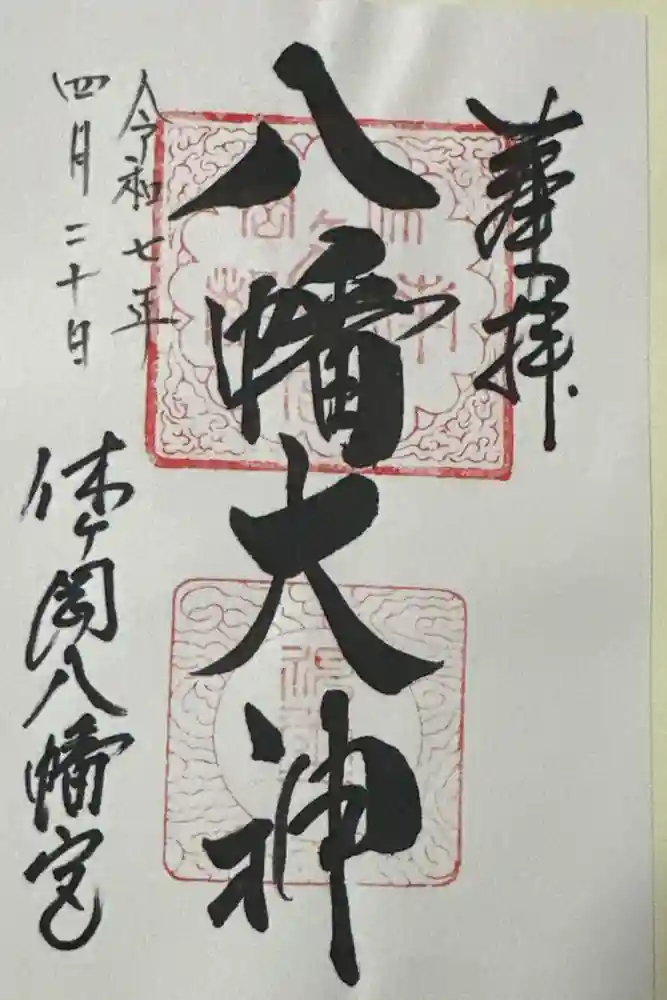 奉拝
八幡大神
令和七年
四月二十日
休ヶ岡八幡宮